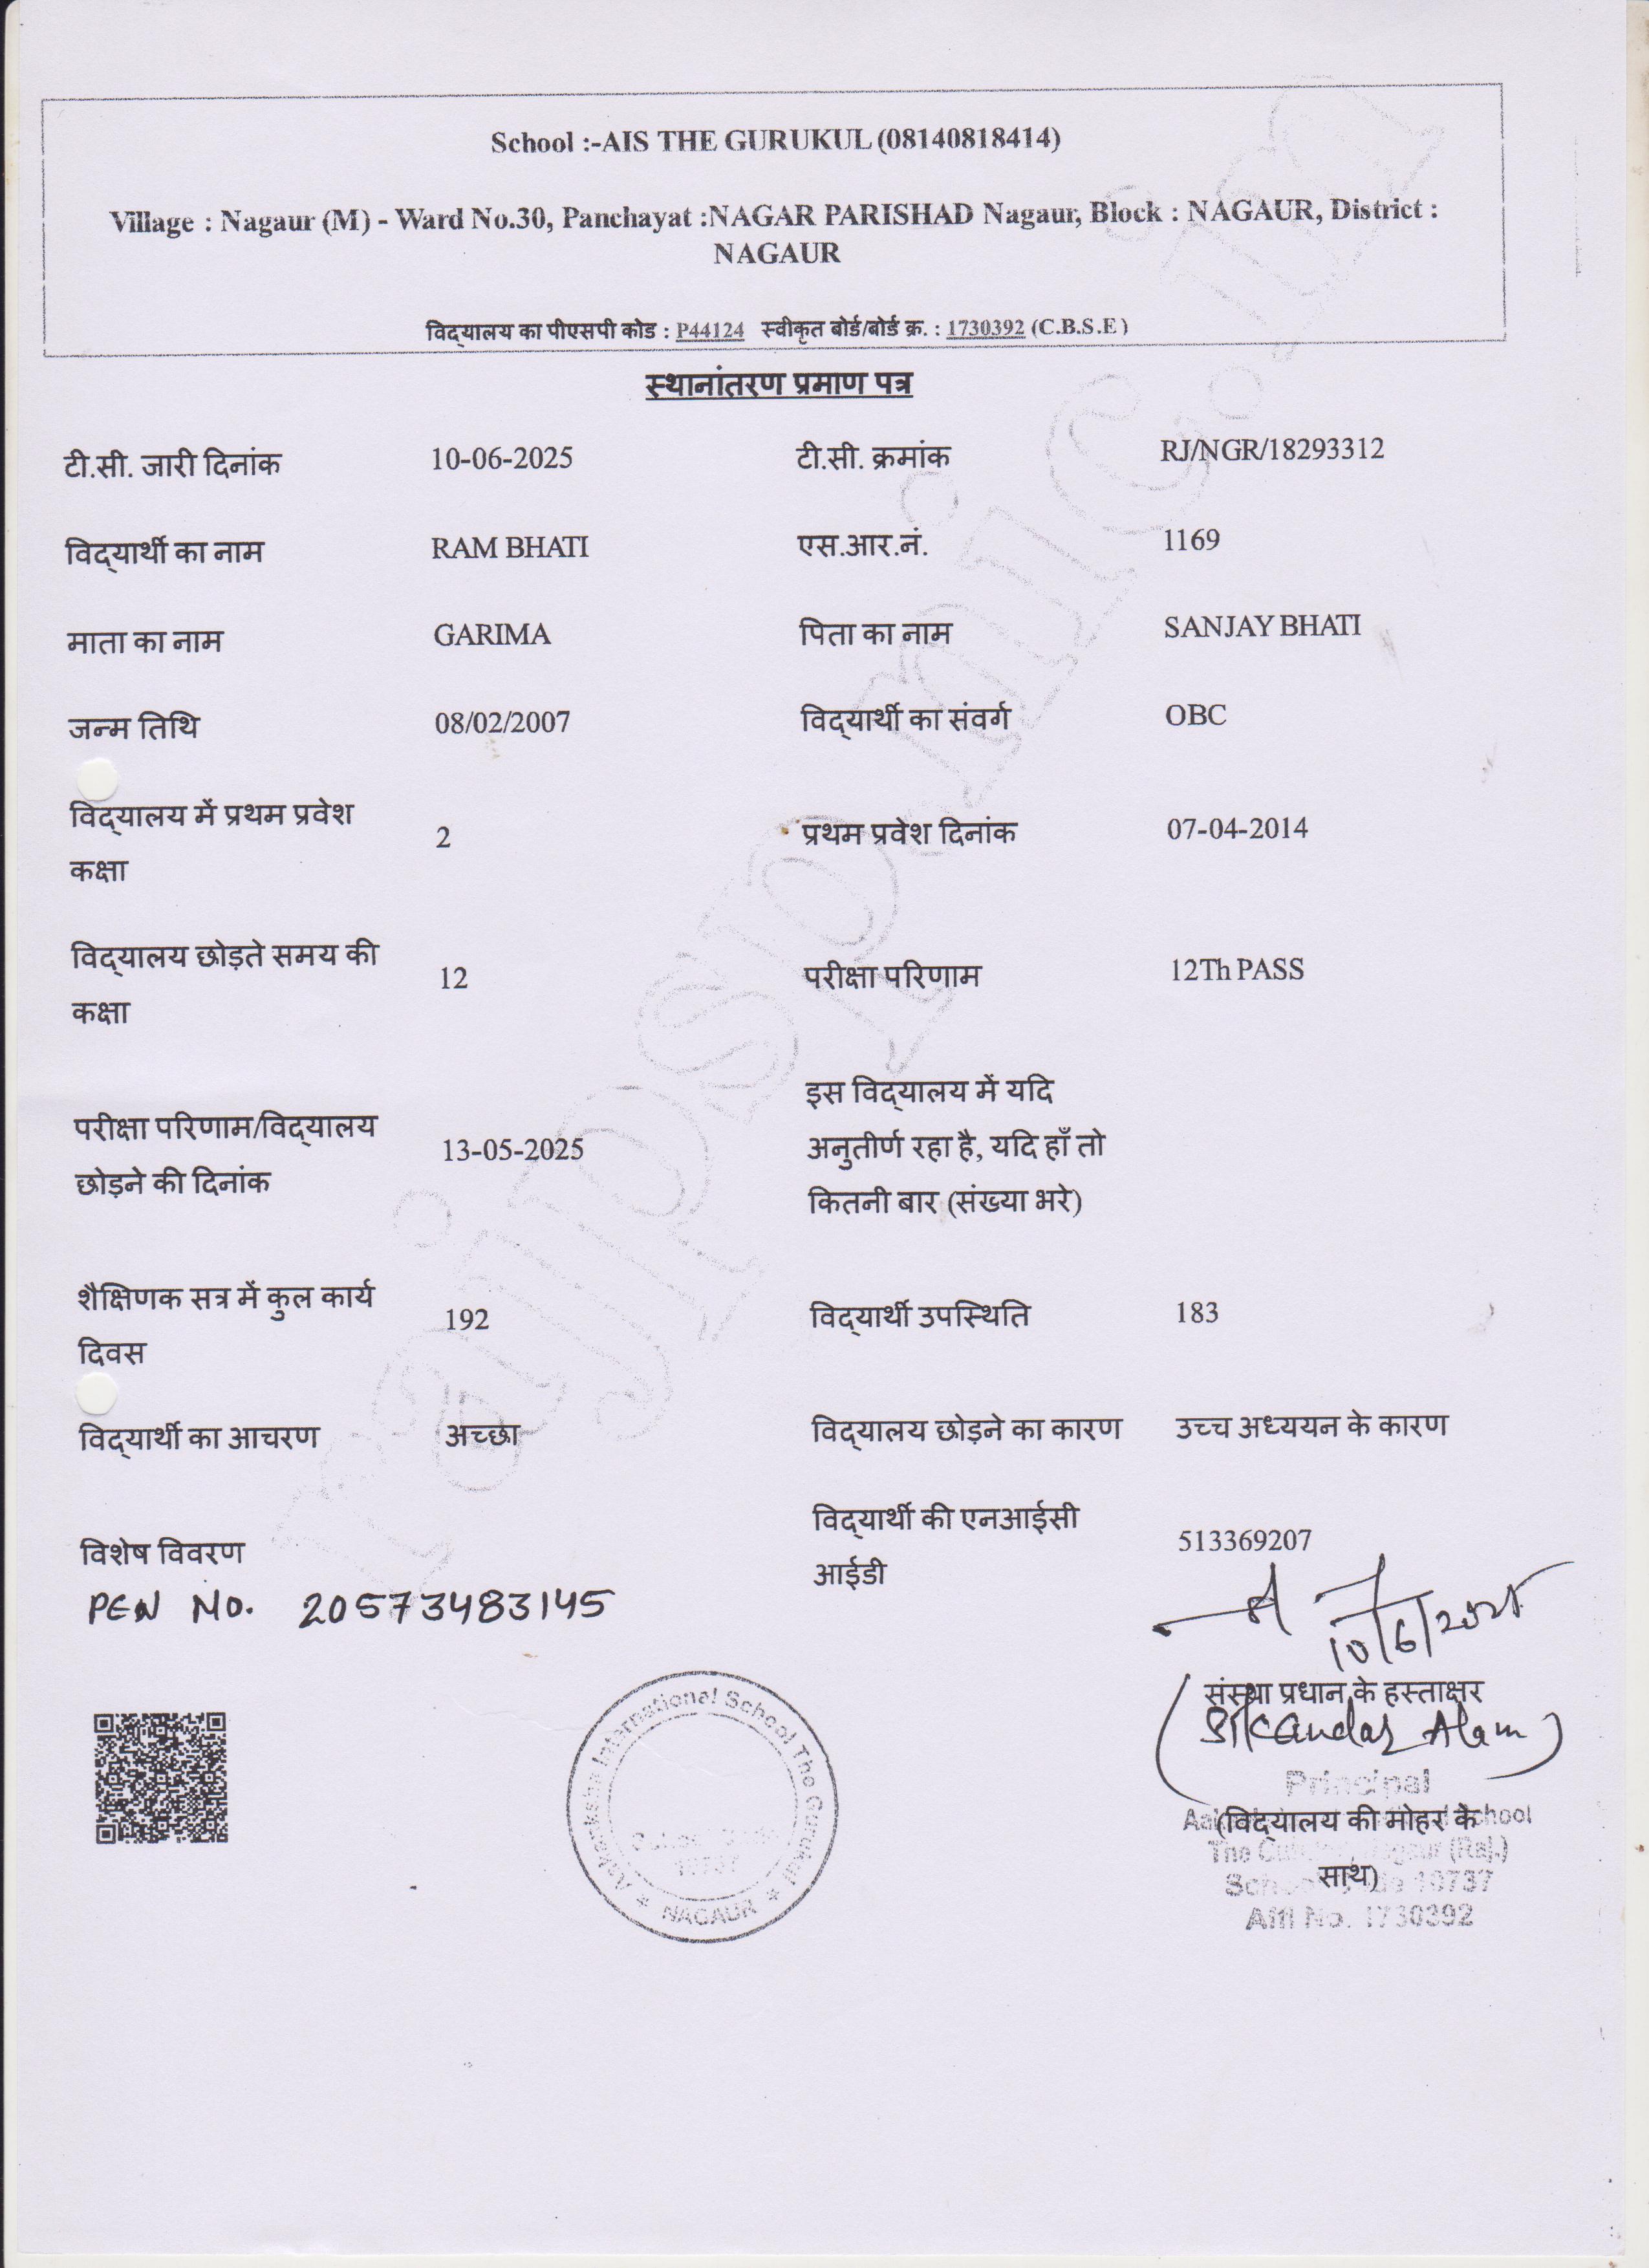 School :-AIS THE GURUKUL (08140818414)
Village : Nagaur (M) - Ward No.30, Panchayat :NAGAR PARISHAD Nagaur, Block : NAGAUR, District :
NAGAUR
विद्यालय का पीएसपी कोड : P44124 स्वीकृत बोर्ड/बोर्ड क्र. : 1730392 (C.B.S.E)
स्थानांतरण प्रमाण पत्र
टी.सी. जारी दिनांक 10-06-2025 टी.सी. क्रमांक RJ/NGR/18293312
विद्यार्थी का नाम RAM BHATI एस.आर.नं. 1169
माता का नाम GARIMA पिता का नाम SANJAY BHATI
जन्म तिथि 08/02/2007 विद्यार्थी का संवर्ग OBC
विद्यालय में प्रथम प्रवेश
कक्षा 2 प्रथम प्रवेश दिनांक 07-04-2014
विद्यालय छोड़ते समय की
कक्षा 12 परीक्षा परिणाम 12Th PASS
परीक्षा परिणाम/विद्यालय
छोड़ने की दिनांक 13-05-2025
इस विद्यालय में यदि
अनुतीर्ण रहा है, यदि हाँ तो
कितनी बार (संख्या भरे)
शैक्षिणक सत्र में कुल कार्य
दिवस 192 विद्यार्थी उपस्थिति 183
विद्यार्थी का आचरण अच्छा विद्यालय छोड़ने का कारण उच्च अध्ययन के कारण
विशेष विवरण
विद्यार्थी की एनआईसी
आईडी 513369207
PEN NO. 20573483145
10/6/2025
संस्था प्रधान के हस्ताक्षर
(Sikandar Alam)
Principal
(विद्यालय की मोहर के
साथ)
School
The Nagaur (Raj.)
School Code 10737
Affi No. 1730392
Aakanksha International School The Gurukul
10737
NAGAUR
rajpsp.nic.in